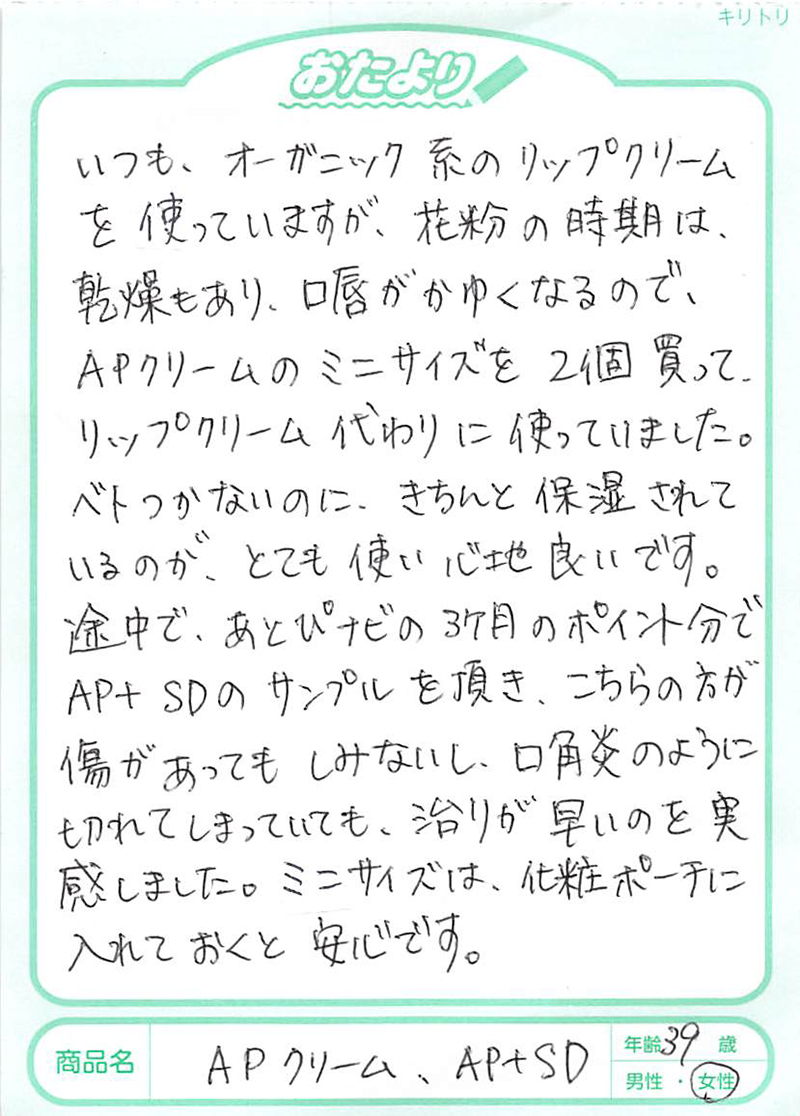 キリトリ
おたより
いつも、オーガニック系のリップクリーム
を使っていますが、花粉の時期は、
乾燥もあり、口唇がかゆくなるので、
APクリームのミニサイズを2個買って、
リップクリーム代わりに使っていました。
ベトつかないのに、きちんと保湿されて
いるのが、とても使い心地良いです。
途中で、あとぴナビの3ケ月のポイント分で
AP+SDのサンプルを頂き、こちらの方が
傷があってもしみないし、口角炎のように
切れてしまっていても、治りが早いのを実
感しました。ミニサイズは、化粧ポーチに
入れておくと安心です。
商品名 APクリーム、AP+SD
年齢39歳
男性・女性